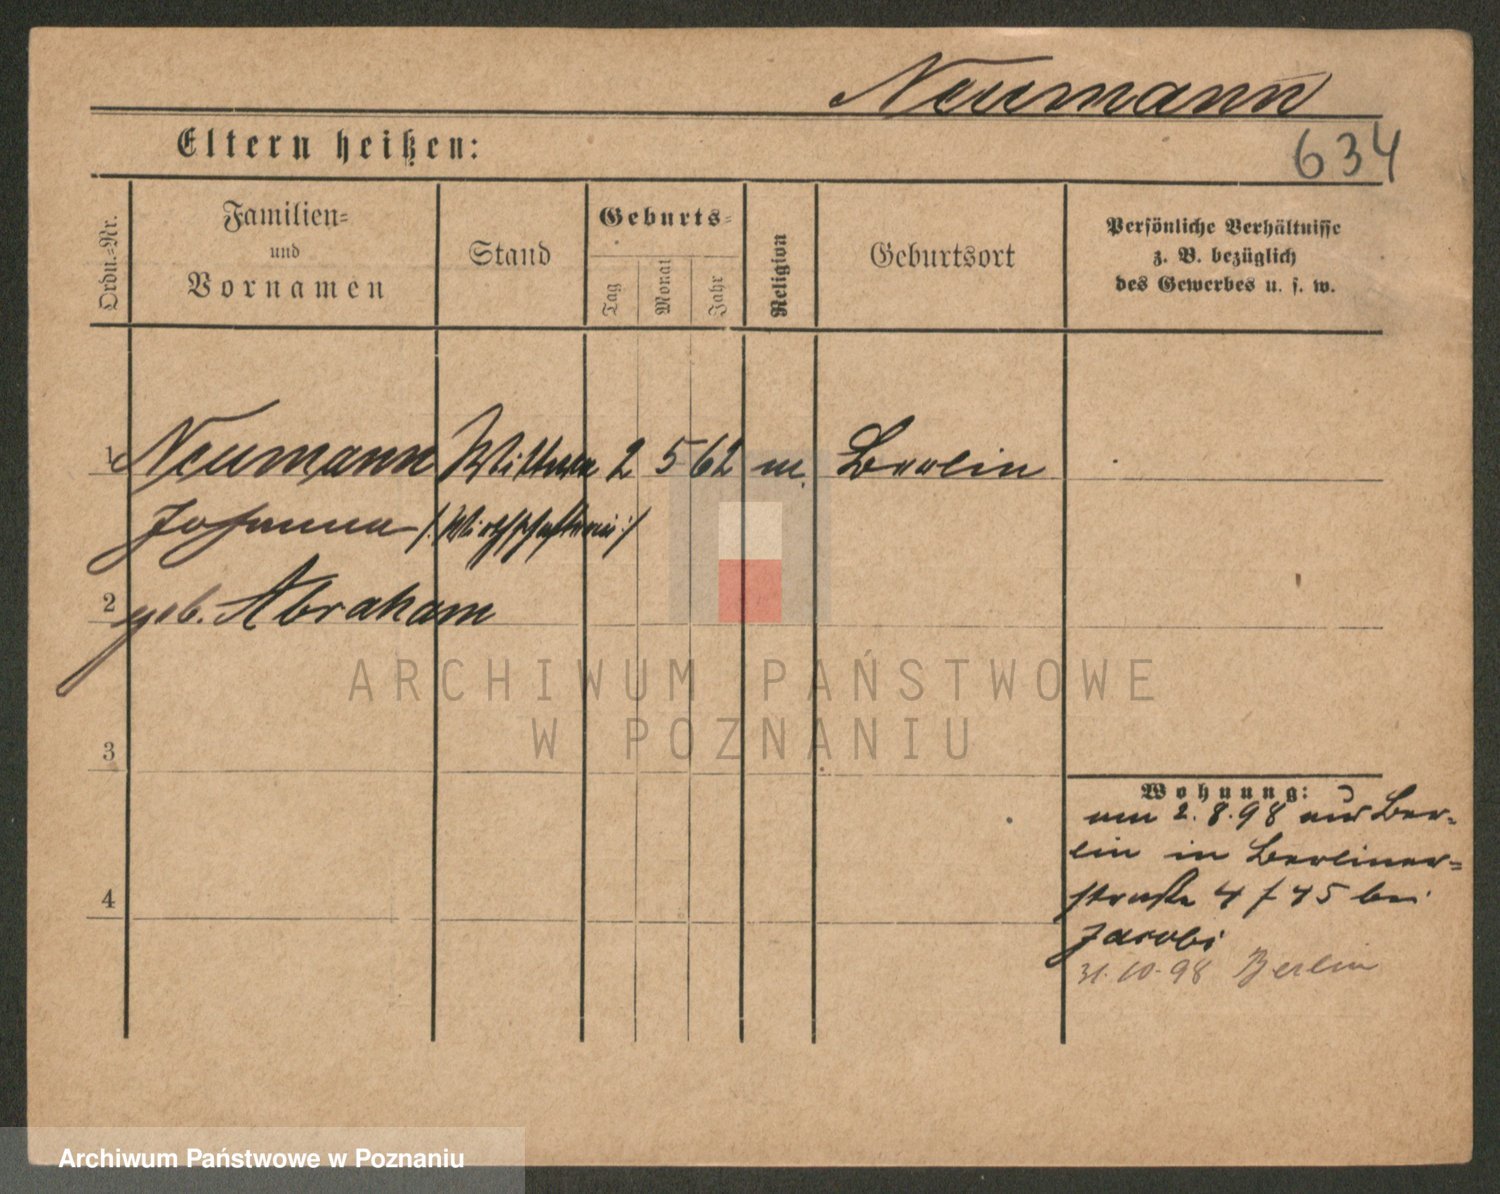 Neumann
634
Eltern heißen:
Ordn.-Nr.
Familien-
und
Vornamen
Stand
Geburts-
Tag
Monat
Jahr
Religion
Geburtsort
Persönliche Verhältnisse
z. B. bezüglich
des Gewerbes u. s. w.
1 Neumann Wittwe 2 5 62 m. Berlin
Johanna /:Wirthschafterin:/
2 geb. Abraham
3
4
Wohnung:
am 2.8.98 aus Ber-
lin in Berliner-
straße 4 / 45 bei
Jacobi
31.10.98 Berlin
ARCHIWUM PAŃSTWOWE
W POZNANIU
Archiwum Państwowe w Poznaniu